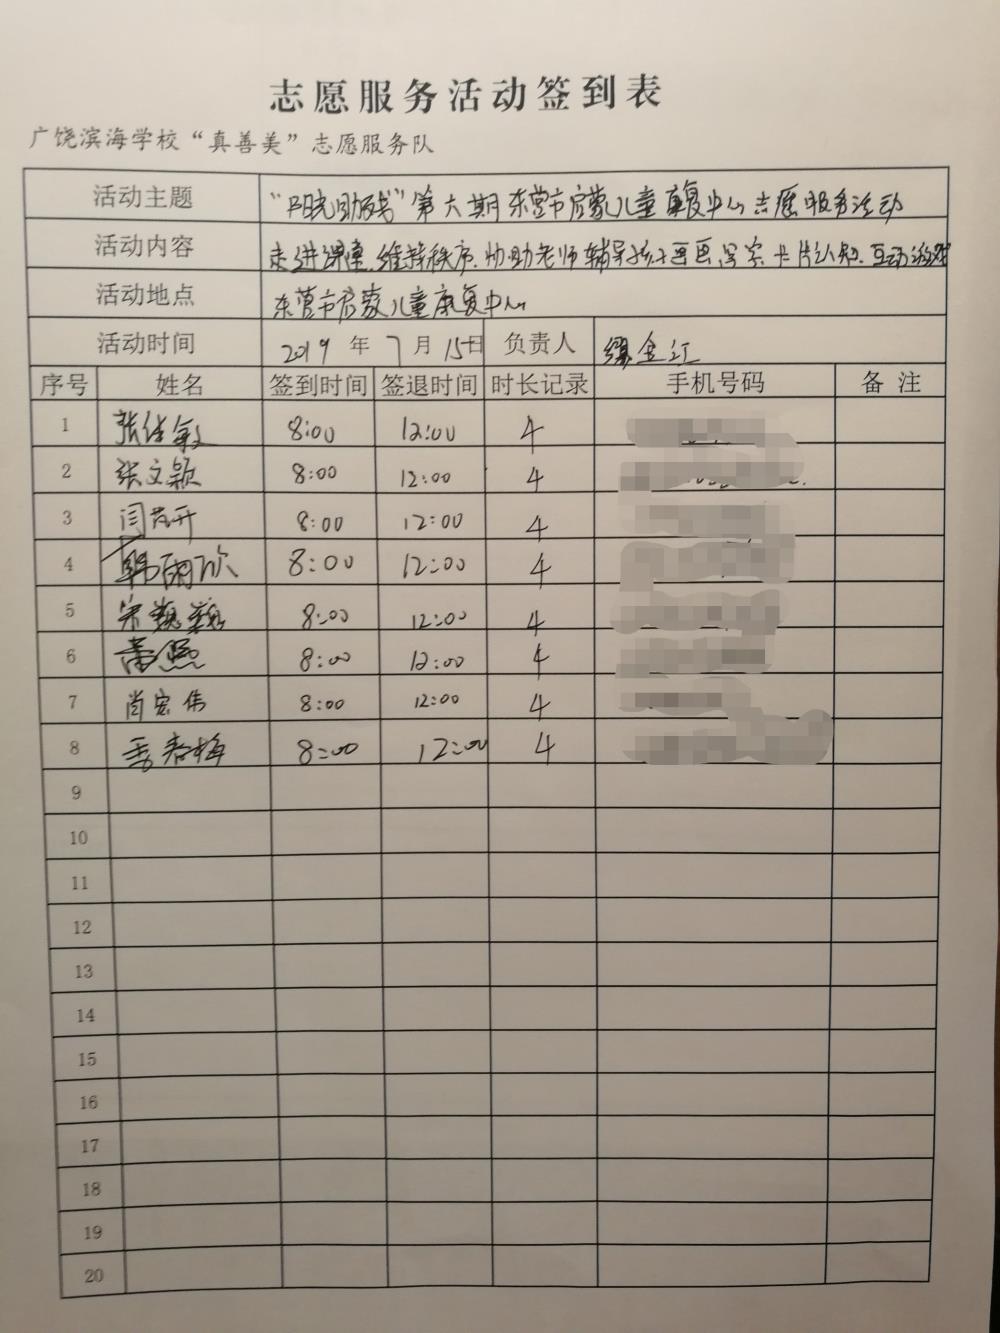 志愿服务活动签到表
广饶滨海学校“真善美”志愿服务队
活动主题 “阳光助残”第六期东营市启蒙儿童康复中心志愿服务活动
活动内容 走进课堂.维持秩序.协助老师辅导孩子画画.写字.卡片认知.互动游戏
活动地点 东营市启蒙儿童康复中心
活动时间 2019 年 7 月 15日 负责人 金江
序号 姓名 签到时间 签退时间 时长记录 手机号码 备 注
1 张 敏 8:00 12:00 4
2 张文颖 8:00 12:00 4
3 闫 开 8:00 12:00 4
4 韩雨欣 8:00 12:00 4
5 宋巍巍 8:00 12:00 4
6 8:00 12:00 4
7 肖宏伟 8:00 12:00 4
8 季春梅 8:00 12:00 4
9
10
11
12
13
14
15
16
17
18
19
20